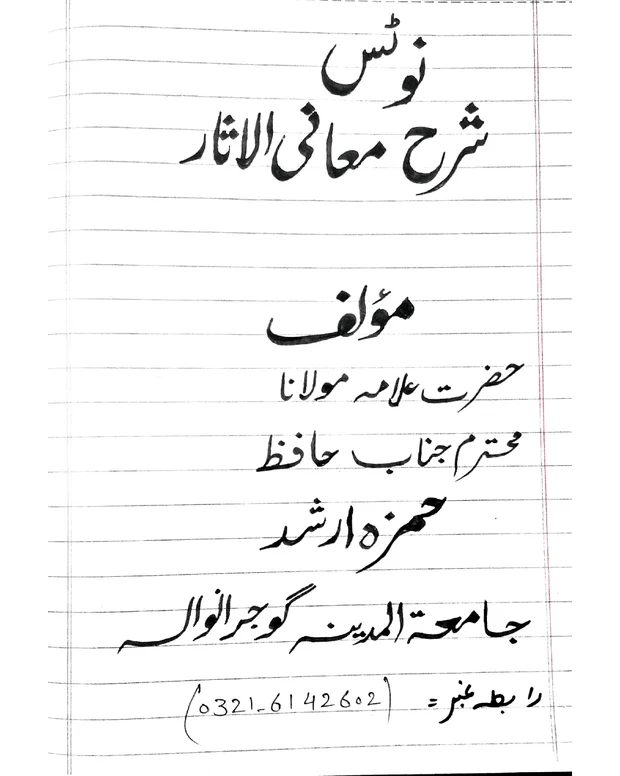 نوٹس
شرح معانی الاثار
مؤلف
حضرت علامہ مولانا
محترم جناب حافظ
حمزہ ارشد
جامعۃ المدینہ گوجرانوالہ
رابطہ نمبر = (0321-6142602)